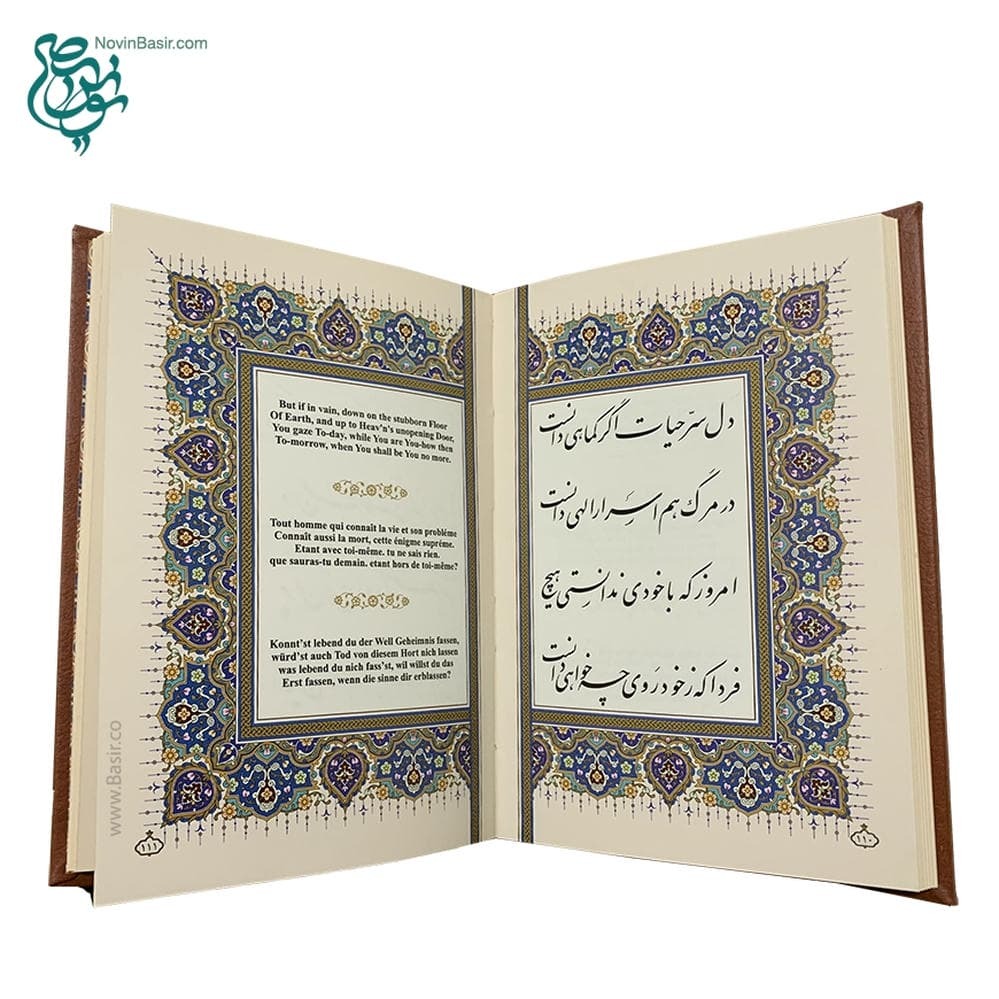 NovinBasir.com
نوین بصیر
دل سرّ حیات اگر کماهی دانست
در مرگ هم اسرار الهی دانست
امروز که با خودی ندانستی هیچ
فردا که ز خود روی چه خواهی دانست
۱۱۰
But if in vain, down on the stubborn Floor
Of Earth, and up to Heav'n's unopening Door,
You gaze To-day, while You are You-how then
To-morrow, when You shall be You no more.
Tout homme qui connaît la vie et son problème
Connaît aussi la mort, cette énigme suprême.
Etant avec toi-même. tu ne sais rien.
que sauras-tu demain. etant hors de toi-même?
Konnt'st lebend du der Well Geheimnis fassen,
würd'st auch Tod von diesem Hort nich lassen
was lebend du nich fass'st, wil willst du das
Erst fassen, wenn die sinne dir erblassen?
۱۱۱
www.Basir.co